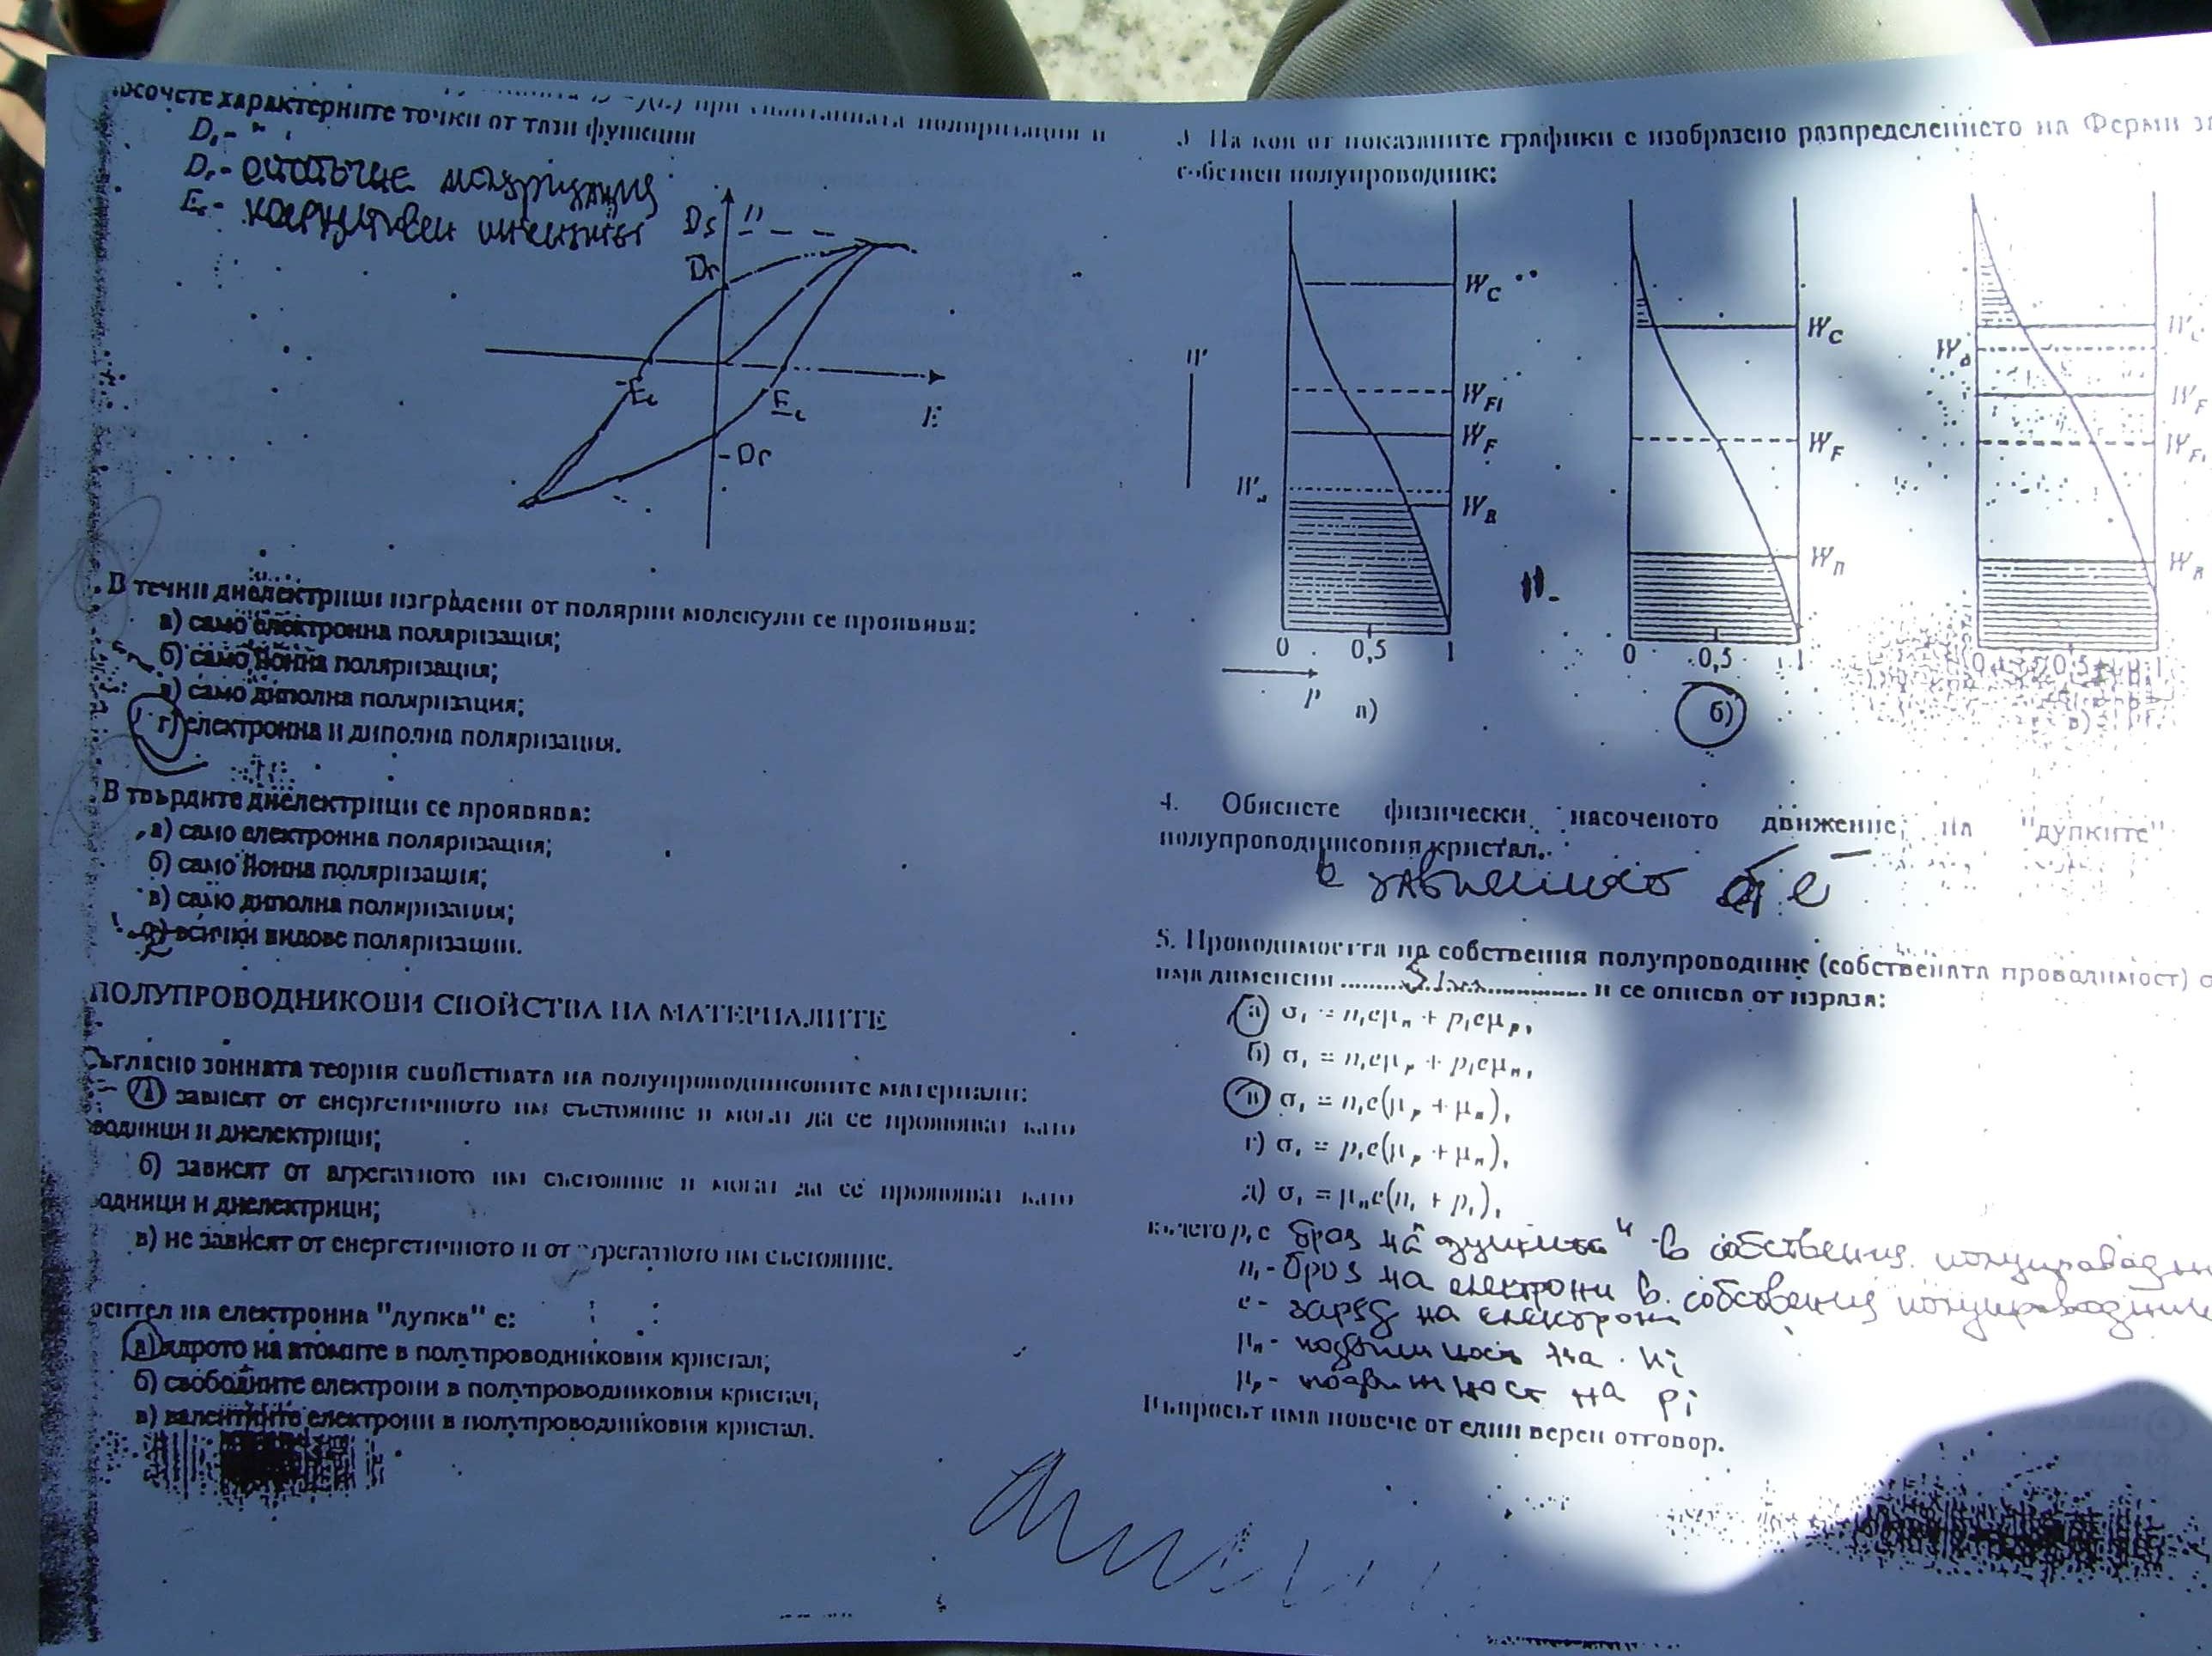 характерните точки от тази функции
Dr -
Ds
Dr
-Ec
Ec
E
-Dr
В течни диелектрици изградени от полярни молекули се проявява:
а) само електронна поляризация;
б) само йонна поляризация;
в) само диполна поляризация;
г) електронна и диполна поляризация.
В твърдите диелектрици се проявява:
а) само електронна поляризация;
б) само йонна поляризация;
в) само диполна поляризация;
г) всички видове поляризации.
ПОЛУПРОВОДНИКОВИ СВОЙСТВА НА МАТЕРИАЛИТЕ
Съгласно зонната теория свойствата на полупроводниковите материали:
а) зависят от енергетичното им състояние и могат да се проявяват като
водници и диелектрици;
б) зависят от агрегатното им състояние и могат да се проявяват като
водници и диелектрици;
в) не зависят от енергетичното и от агрегатното им състояние.
на електронна "дупка" е:
а) ядрото на атомите в полупроводниковия кристал;
б) свободните електрони в полупроводниковия кристал;
в) валентните електрони в полупроводниковия кристал.
3 На кои от показаните графики е изобразено разпределението на Ферми
собствен полупроводник:
W
WC
WFi
WF
WB
0 0,5 1
P
а)
WC
WF
0 0,5 1
б)
WF
WB
в)
4. Обяснете физически насоченото движение на "дупките"
полупроводниковия кристал.
в зависимост от
5. Проводимостта на собствения полупроводник (собствената проводимост)
има дименсии и се описва от израза:
а) σi = nieμn + pieμp,
б) σi = nieμp + pieμn,
в) σi = nie(μp + μn),
г) σi = pie(μp + μn),
д) σi = μne(ni + pi),
където pi е брой на "дупките" в собствения
ni - броя на електрони в собствения
e - заряд на електрона
μn - подвижност на ni
μp - подвижност на pi
Въпросът има повече от един верен отговор.